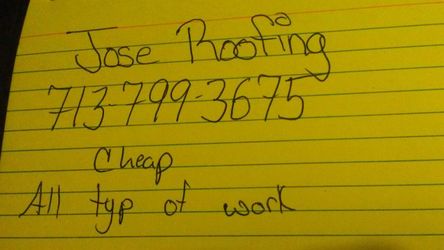 Jose Roofing
713-799-3675
Cheap
All typ of work